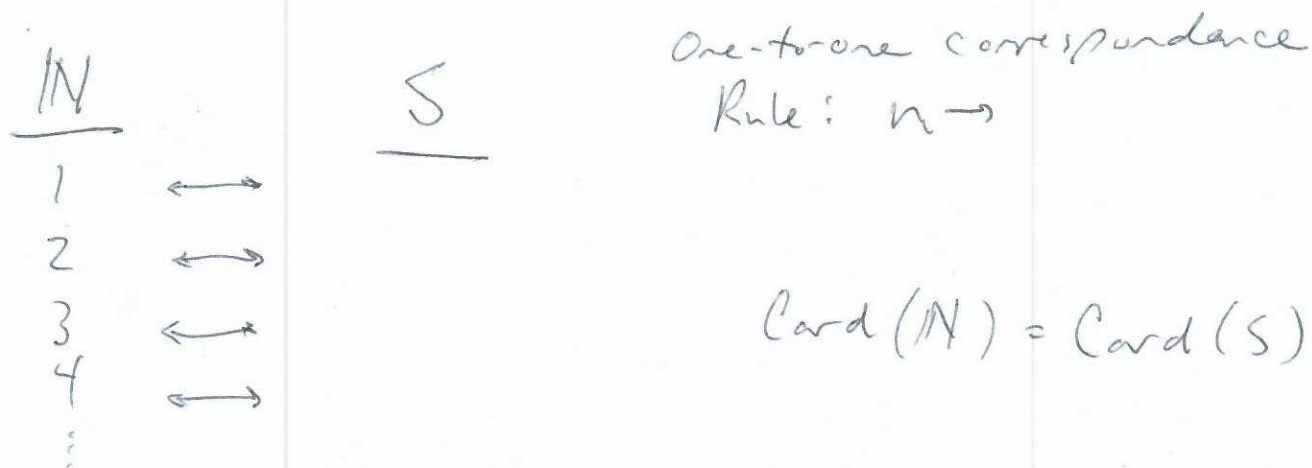 One-to-one correspondence
ℕ S Rule: n →
1 ↔
2 ↔
3 ↔ Card(ℕ) = Card(S)
4 ↔
⋮